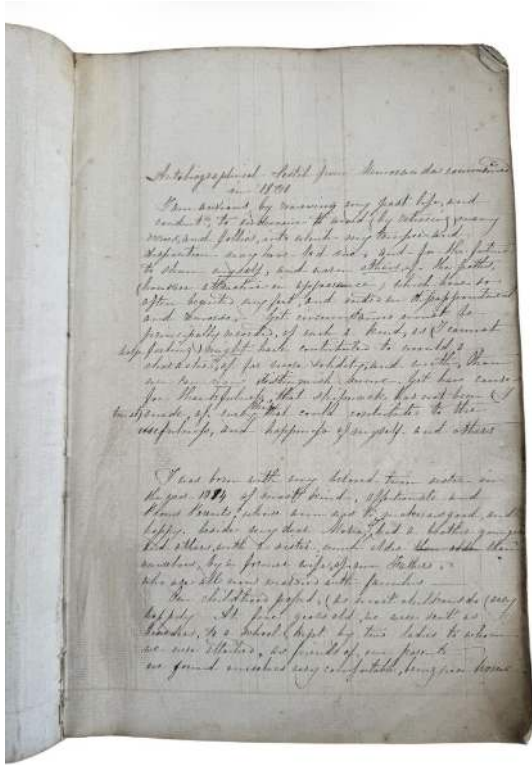 Autobiographical Sketch from Memoranda commenced
in 18
I am anxious, by reviewing my past life, and
conduct, to endeavour to avoid (by retracing) many
errors, and follies, into which my temper and
disposition may have led me, and for the future
to shun myself, and warn others, of the paths,
(however attractive in appearance) which have so
often beguiled my feet, and ended in disappointment
and . Yet circumstances must be
principally recorded, of such a kind, as I cannot
help feeling, might have contributed to mould a
character, of far more solidity, and worth, than
we can now distinguish mine. Yet have cause
for thankfulness, that shipwreck has not been (I
trust) made, of every thing that could contribute to the
usefulness, and happiness of myself and others

I was born with my beloved twin sister in
the year of most kind, affectionate and
Pious Parents, whose aim was to make us good, and
happy. beside my dear Maria, I had a brother younger
and others, with a sister, much older than
ourselves, by a former wife, of our Fathers.
who are all now married with families
Our childhood passed, (as most childrens do) very
happily. At four years old, we were sent as
boarders, to a school, kept by two ladies to whom
we were attached, as friends of our parents
we found ourselves very comfortable, being near home